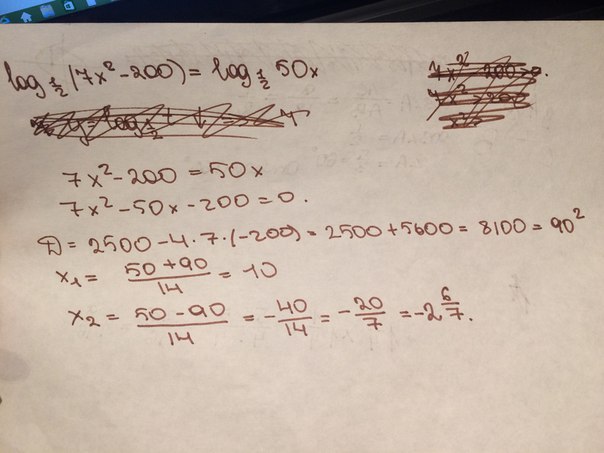 log_{1/2}(7x² - 200) = log_{1/2} 50x
7x² - 200 = 50x
7x² - 50x - 200 = 0.
D = 2500 - 4 · 7 · (-200) = 2500 + 5600 = 8100 = 90²
x₁ = (50 + 90)/14 = 10
x₂ = (50 - 90)/14 = -40/14 = -20/7 = -2 6/7.